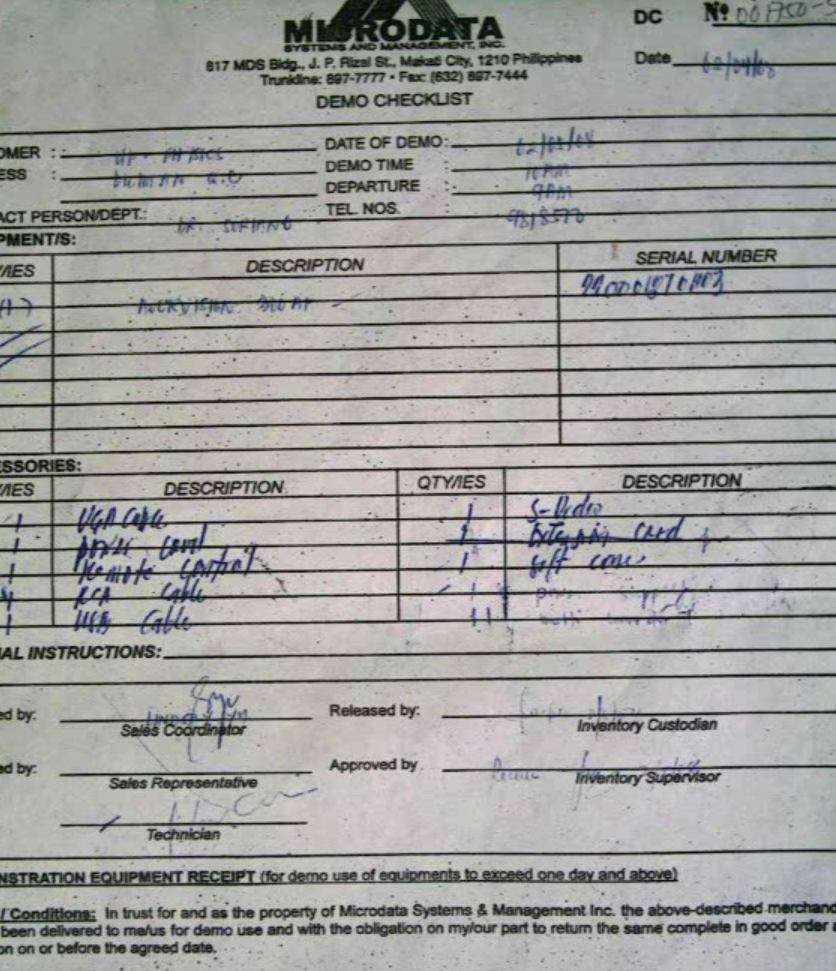 MICRODATA
SYSTEMS AND MANAGEMENT, INC.
817 MDS Bldg., J. P. Rizal St., Makati City, 1210 Philippines
Trunkline: 897-7777 • Fax: (632) 897-7444
DC Nº
Date
DEMO CHECKLIST
OMER : UP - PHYSICS DATE OF DEMO:
ESS : DILIMAN Q.C DEMO TIME : 10AM
DEPARTURE : 9AM
ACT PERSON/DEPT.: DR. SORIANO TEL NOS. 
PMENT/S:
/IES DESCRIPTION SERIAL NUMBER
ESSORIES:
/IES DESCRIPTION QTY/IES DESCRIPTION
1 VGA Cable 1 S-Video
1 Power Cord 1 Extension Cord
1 Remote Control 1 Soft case
RCA Cable 1
1 USB Cable
AL INSTRUCTIONS:
ed by: Sales Coordinator Released by: Inventory Custodian
ed by: Sales Representative Approved by Inventory Supervisor
Technician
NSTRATION EQUIPMENT RECEIPT (for demo use of equipments to exceed one day and above)
/ Conditions: In trust for and as the property of Microdata Systems & Management Inc. the above-described merchand
been delivered to me/us for demo use and with the obligation on my/our part to return the same complete in good order a
on on or before the agreed date.